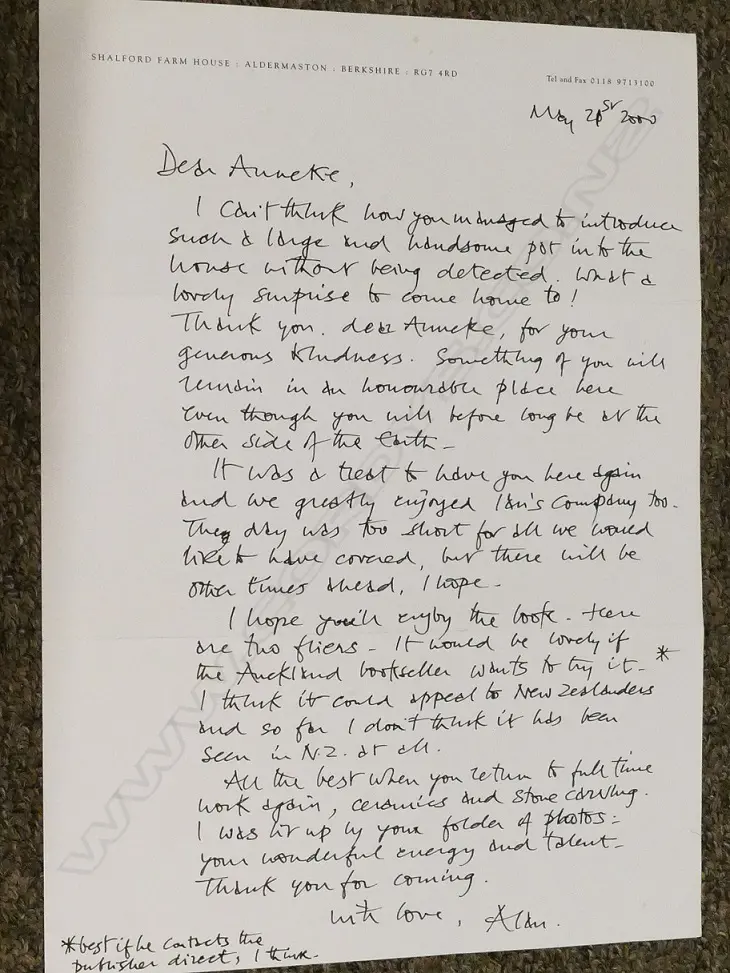 SHALFORD FARM HOUSE : ALDERMASTON : BERKSHIRE : RG7 4RD
Tel and Fax 0118 9713100
May 21st 2000
Dear Anneke,
I can't think how you managed to introduce
such a large and handsome pot into the
house without being detected. What a
lovely surprise to come home to!
Thank you, dear Anneke, for your
generous kindness. Something of you will
remain in an honourable place here
even though you will before long be at the
other side of the Earth -
It was a treat to have you here again
and we greatly enjoyed Ian's company too.
The day was too short for all we would
like to have covered, but there will be
other times ahead, I hope -
I hope you'll enjoy the book - Here
are two fliers - It would be lovely if
the Auckland bookseller wants to try it - *
I think it could appeal to New Zealanders
and so far I don't think it has been
seen in N.Z. at all.
All the best when you return to full time
work again, ceramics and stone carving.
I was lit up by your folder of photos =
your wonderful energy and talent -
Thank you for coming.
with love, Alan.
*best if he contacts the
publisher direct, I think.